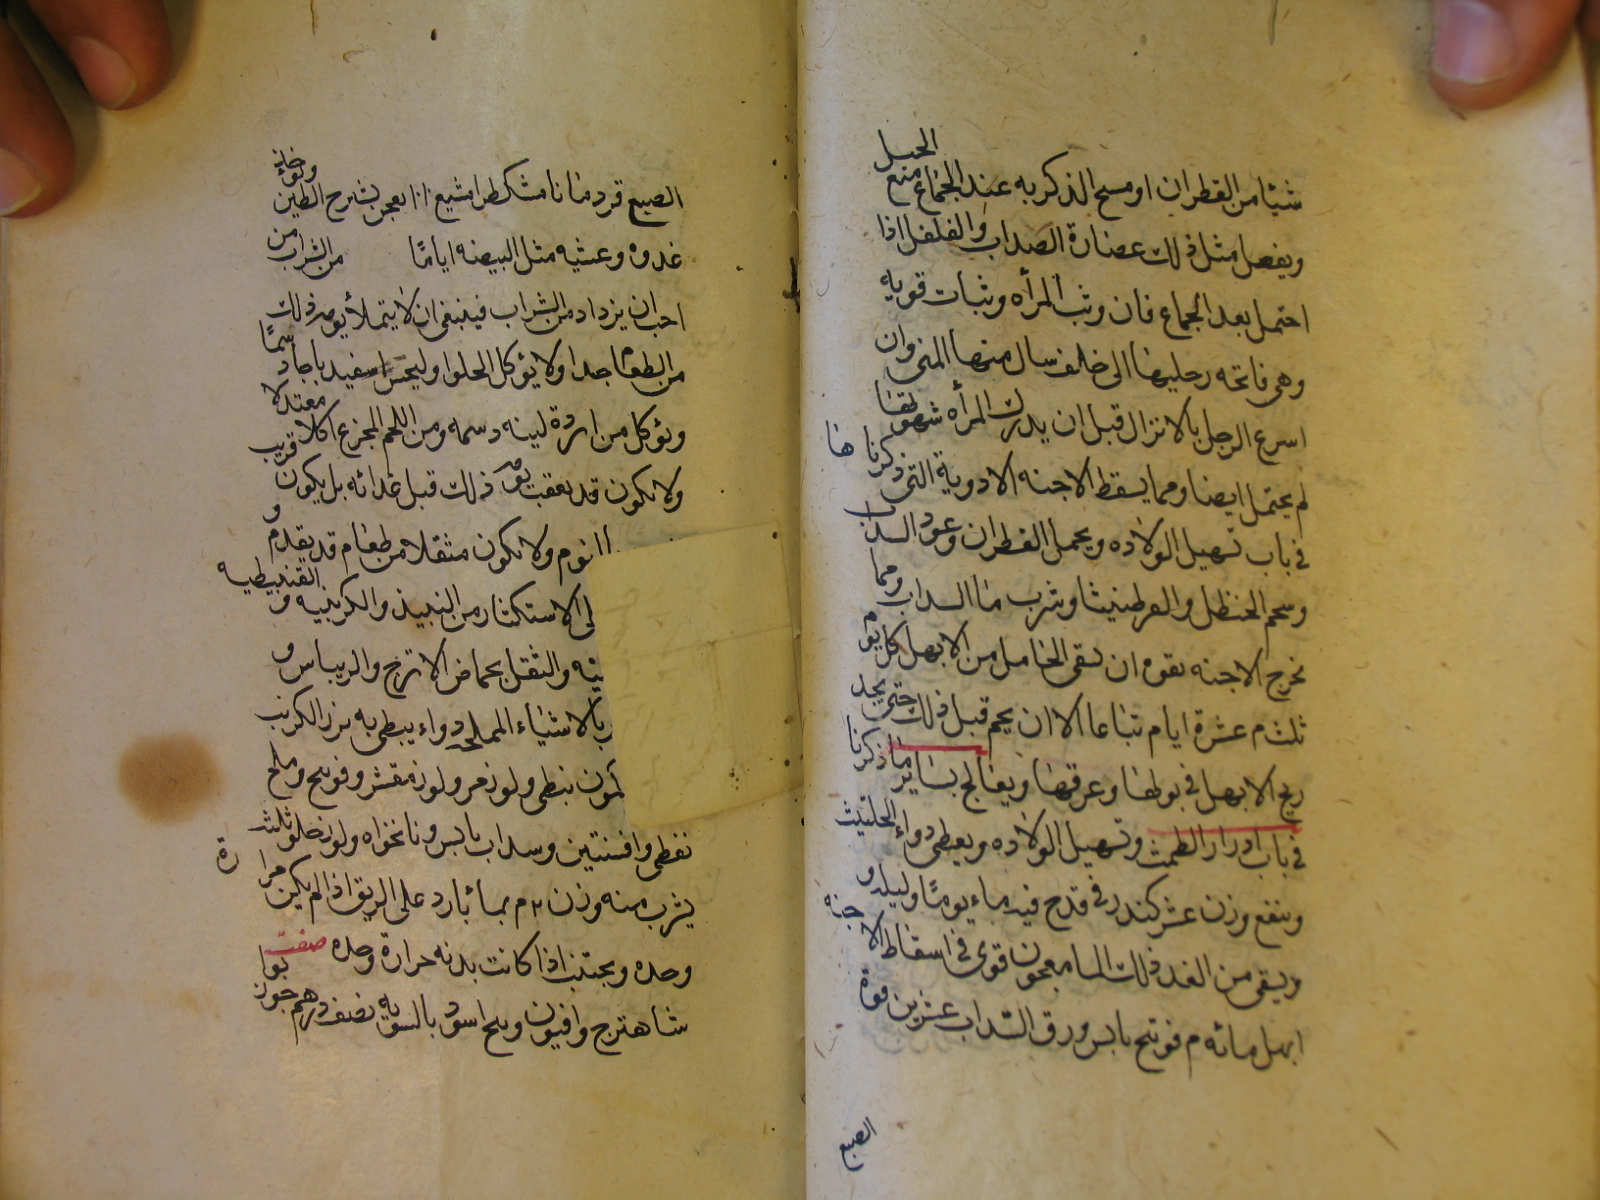 شيئا من القطران او مسح الذكر به عند الجماع منع الحبل
ويفعل مثل ذلك عصارة الصداب والفلفل اذا
احتمل بعد الجماع فان وثب المرأه وثبات قويه
وهى فاتحه رجليها الى خلف سال منها المنى وان
اسرع الرجل بالانزال قبل ان يدرك المرأه شهوتها
لم يحتمل ايضا ومما يسقط الاجنه الادوية التى ذكرنا ها
فى باب تسهيل الولاده ويحمل القطران وعود السداب
وشحم الحنظل والعرطنيثا وشرب ما السداب ومما
يخرج الاجنه بقوه ان يسقى الحامل من الابهل كل يوم
ثلث م عشرة ايام تباعا الا ان يحم قبل ذلك حتى يجد
ريح الابهل فى بولها وعرقها ويعالج بساير ما ذكرنا
فى باب ادرار الطمث وتسهيل الولاده ويعطى دواء الحلتيث
وينقع وزن عشر كندر فى قدح فيه ماء يوما وليله و
ويسقى من الغد ذلك الما معجون قوى فى اسقاط الاجنه
ابهل مائه م فوتنج يابس ورق السداب عشرين فوة
الصبع
الصبع قردمانا مشكطرامشيع ا ا يعجن بشرح الطين ويؤخذ
غدوه وعشيه مثل البيضه اياما من الشراب من
احب ان يزداد من الشراب فينبغى ان لا يتملأ يوم ذلك
من الطعام جدا ولا يؤكل الحلوا وليحس اسفيدباجا دسما
ويؤكل من اردة لينه دسمه ومن اللحم المجزع اكلا معتدلا
ولا يكون قد تعقب يوم ذلك قبل غذائه بل يكون قريب
النوم ولا يكون مثقلا من طعام قد يقدم و
لى الاستكثار من النبيذ والكرنبيه و القنبيطيه
ينه والتنقل بحماض الاترج والريباس و
بالاشياء المملحه دواء يبطى به بزر الكرنب
كمون نبطى ولوز مر ولوز مقشر وفوتنج وملح
نفطى وافسنتين وسداب يابس ونانخواه ولوز حلو ثلث
يشرب منه وزن ٢ م بماء بارد على الريق اذا لم يكن مرارة
وحده ويجتنب اذا كانت بدنه حرارة وحده صفت
شاهترج وافيون وبنج اسود بالسويه نصف درهم جوز بوا